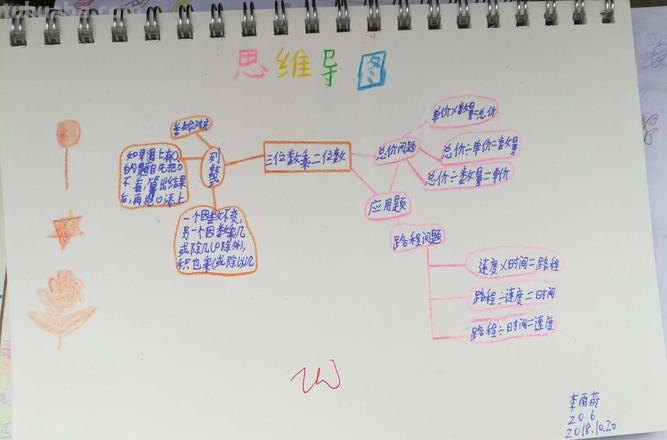 思维导图
三位数乘二位数
列竖式
数位对齐
如果遇上有0
的题目先把0
不看,算出结果
后,再把0添上
一个因数不变,
另一个因数乘几
或除几(0除外),
积也乘(或除以)几
应用题
总价问题
单价×数量=总价
总价÷单价=数量
总价÷数量=单价
路程问题
速度×时间=路程
路程÷速度=时间
路程÷时间=速度
206
2018.10.20